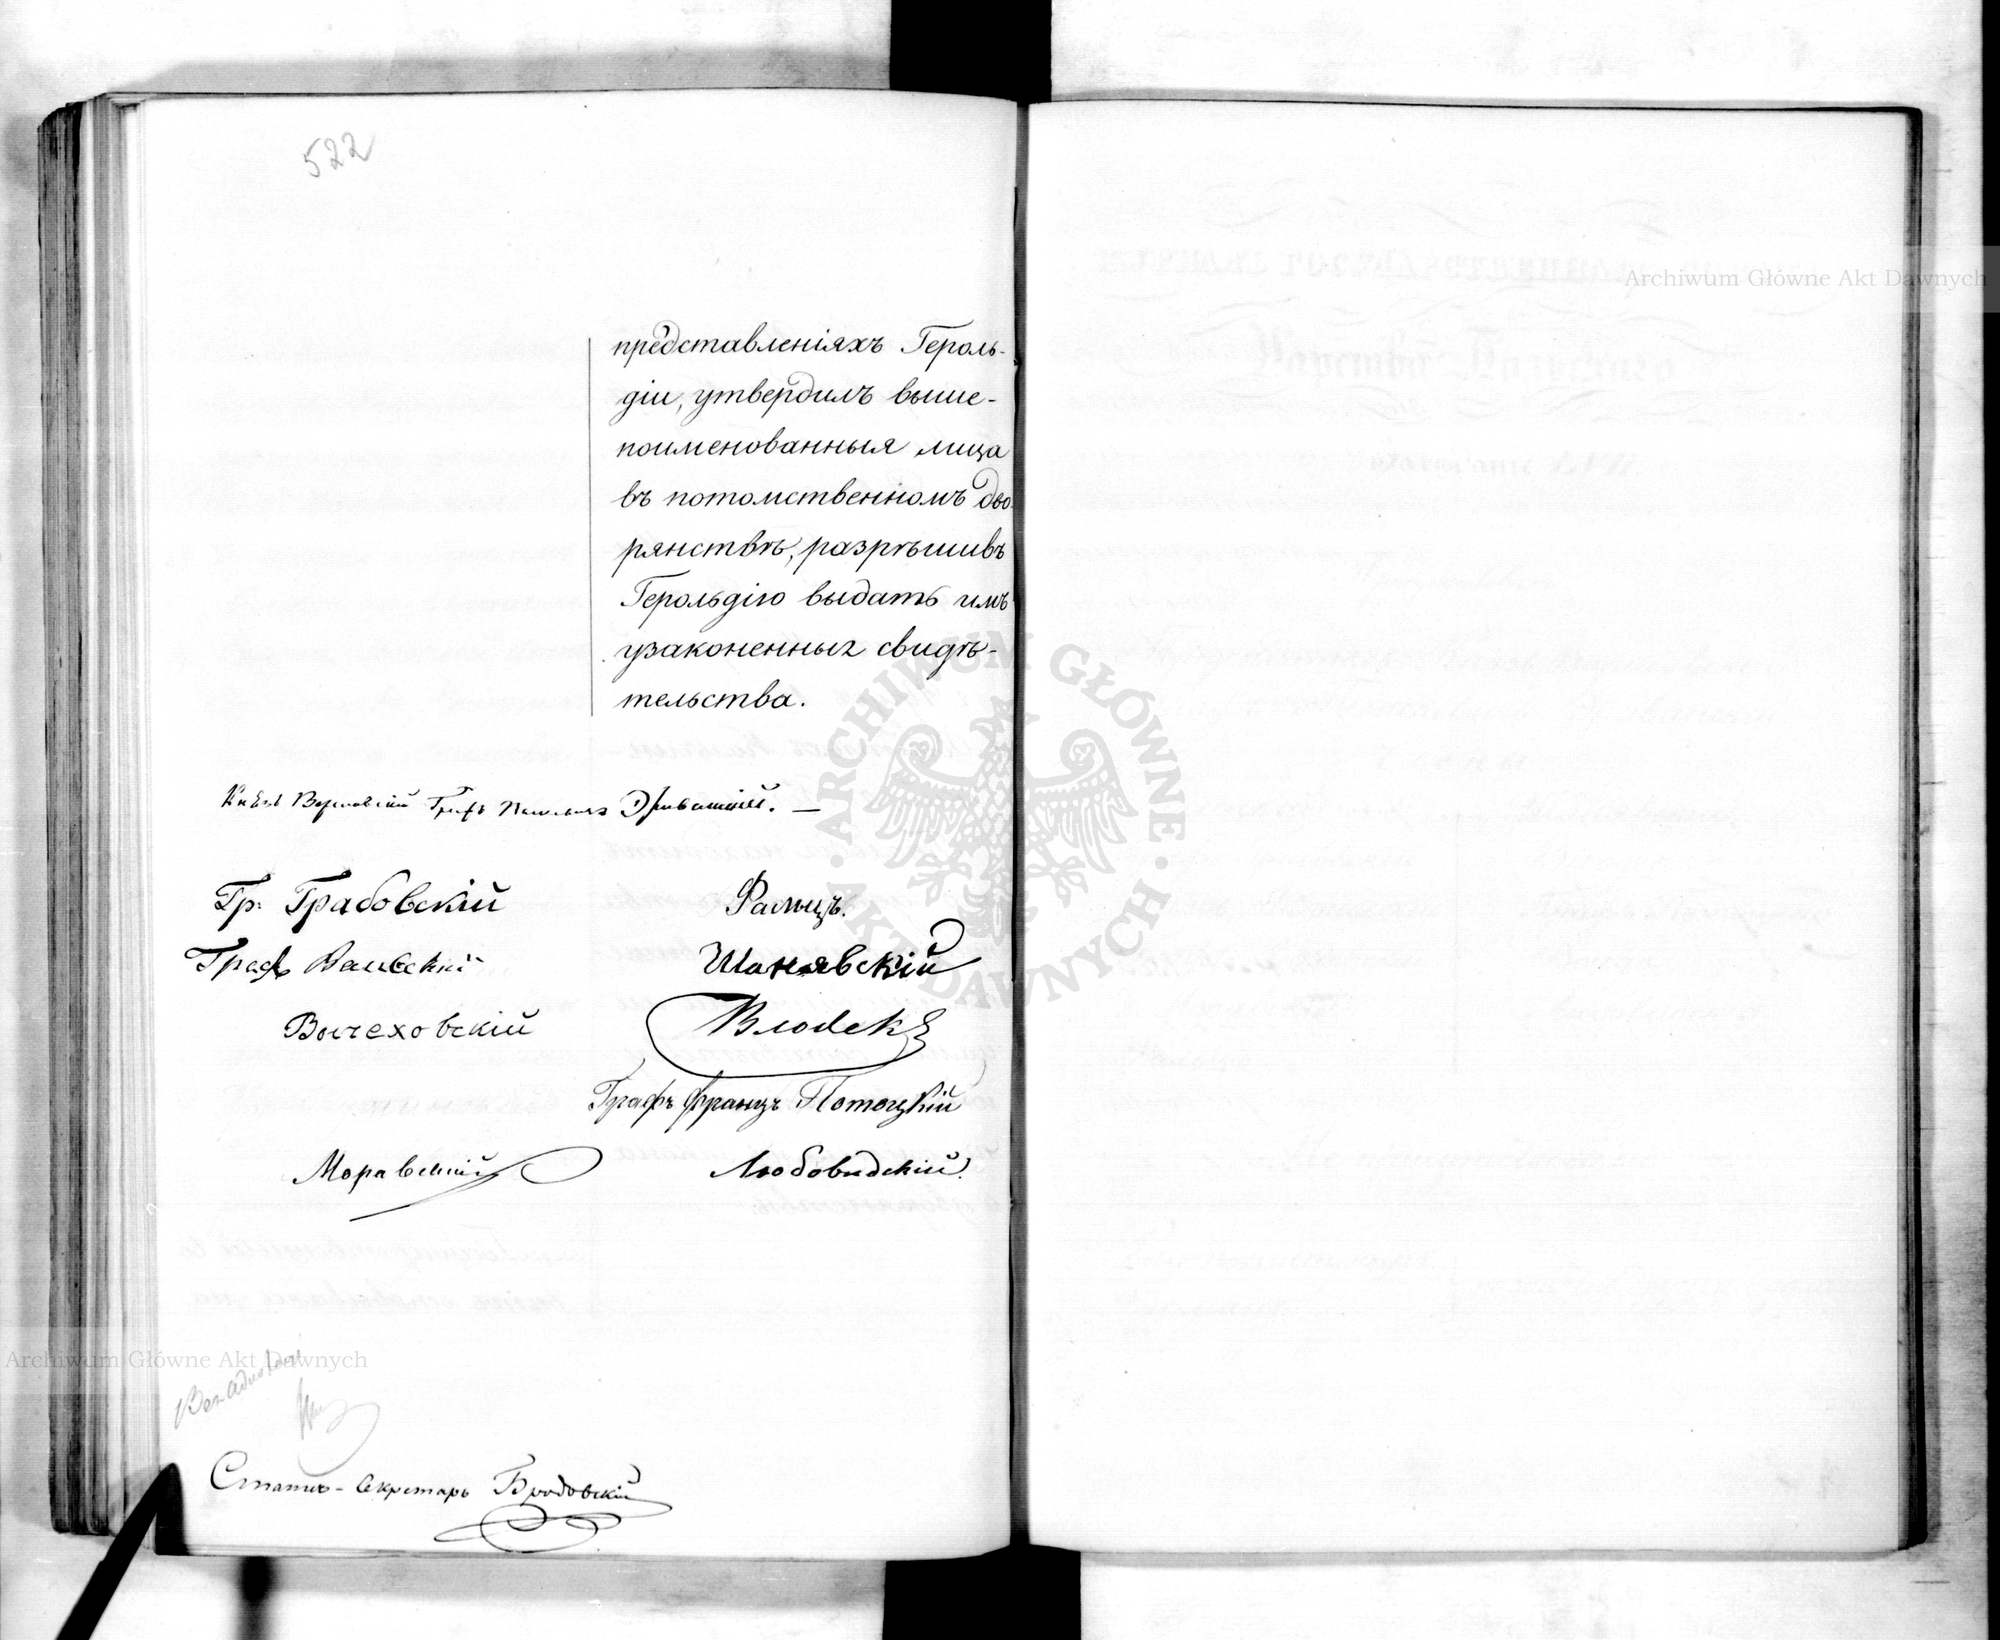 522
представленіяхъ Героль-
діи, утвердилъ выше-
поименованныя лица
въ потомственномъ дво-
рянствѣ, разрѣшивъ
Герольдію выдать имъ
узаконенныя свидѣ-
тельства.
Князь Варшавскій Графъ Паскевичъ Эриванскій. —
Гр. Грабовскій
Фальцъ.
Графъ Валевскій
Шанявскій
Вычеховскій
Влодекъ
Графъ Францъ Потоцкій
Моравскій
Любовидскій
Статсъ-Секретарь Бродовскій
Archiwum Główne Akt Dawnych
Archiwum Główne Akt Dawnych
ARCHIWUM GŁÓWNE · AKT DAWNYCH ·